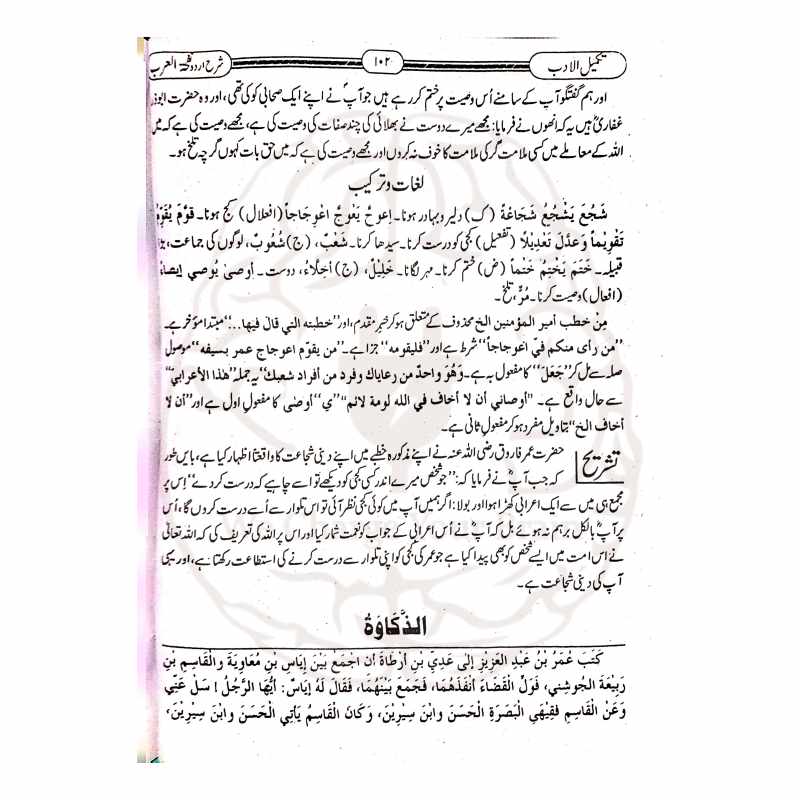 تکمیل الادب ۱۰۲ شرح اردو نفحۃ العرب
اور ہم گفتگو آپ کے سامنے اُس وصیت پر ختم کر رہے ہیں جو آپؐ نے اپنے ایک صحابی کو کی تھی، اور وہ حضرت ابوذر
غفاریؓ ہیں یہ کہ انھوں نے فرمایا: مجھے میرے دوست نے بھلائی کی چند صفات کی وصیت کی ہے، مجھے وصیت کی ہے کہ میں
اللہ کے معاملے میں کسی ملامت گر کی ملامت کا خوف نہ کروں اور مجھے وصیت کی ہے کہ میں حق بات کہوں گرچہ تلخ ہو۔
لغات وترکیب
شَجُعَ يَشْجُعُ شَجَاعَةً (ک) دلیر و بہادر ہونا۔ اِعوجَّ يَعْوجُّ اعْوِجَاجاً (افعلال) کج ہونا۔ قوَّم يُقَوِّمُ
تَقْوِيْماً وَعَدَّلَ تَعْدِيْلًا (تفعیل) کجی کو درست کرنا۔ سیدھا کرنا۔ شَعْبٌ، (ج) شُعُوبٌ، لوگوں کی جماعت، بڑا
قبیلہ۔ خَتَمَ يَخْتِمُ خَتْماً (ض) ختم کرنا۔ مہر لگانا۔ خَلِيْلٌ، (ج) أخِلَّاءُ، دوست۔ أوصىٰ يُوصي إيصاءً
(افعال) وصیت کرنا۔ مُرٌّ، تلخ۔
مِنْ خطب أمير المؤمنين الخ محذوف کے متعلق ہو کر خبر مقدم، اور "خطبته التي قال فيها...." مبتدا مؤخر ہے۔
"من رأى منكم فيّ اعوجاجاً" شرط ہے اور "فليقومه" جزا ہے۔ "من يقوّم اعوجاج عمر بسيفه" موصول
صلہ سے مل کر "جَعَلَ" کا مفعول بہ ہے۔ وَهُوَ واحدٌ من رعاياك وفرد من أفراد شعبك" یہ جملہ "هذا الأعرابي"
سے حال واقع ہے۔ "أوصاني أن لا أخاف في الله لومة لائم" "ي" "أوصٰى کا مفعول اول ہے اور "أن لا
أخاف الخ" بتاویل مفرد ہو کر مفعول ثانی ہے۔
تشریح حضرت عمر فاروق رضی اللہ عنہ نے اپنے مذکورہ خطبے میں اپنے دینی شجاعت کا واقعتاً اظہار کیا ہے، بایں طور
کہ جب آپؓ نے فرمایا کہ: "جو شخص میرے اندر کسی کجی کو دیکھے تو اسے چاہیے کہ درست کر دے" اِس پر
مجمع ہی میں سے ایک اعرابی کھڑا ہوا اور بولا: اگر ہمیں آپ میں کوئی کجی نظر آئی تو اس تلوار سے اُسے درست کروں گا، اُس
پر آپؓ بالکل برہم نہ ہوئے بل کہ آپؓ نے اُس اعرابی کے جواب کو نعمت شمار کیا اور اس پر اللہ کی تعریف کی کہ اللہ تعالیٰ
نے اس امت میں ایسے شخص کو بھی پیدا کیا ہے جو عمر کی کجی کو اپنی تلوار سے درست کرنے کی استطاعت رکھتا ہے، اور یہی
آپ کی دینی شجاعت ہے۔
الذَّكَاوَةُ
كَتَبَ عُمَرُ بْنُ عَبْدِ الْعَزِيْزِ إلى عَدِيِّ بْنِ أرْطَاةَ أن اجْمَعْ بَيْنَ إيَاسِ بْنِ مُعَاوِيَةَ والْقَاسِمِ بْنِ
رَبِيْعَةَ الْجُوشِني، فَوَلِّ الْقَضَاءَ أنْفَذَهُمَا، فَجَمَعَ بَيْنَهُمَا، فَقَالَ لَهُ إيَاسٌ: أيُّهَا الرَّجُلُ! سَلْ عَنِّي
وَعَنْ الْقَاسِمِ فَقِيْهَي الْبَصَرَةِ الْحَسَنَ وابْنَ سِيْرِيْنَ، وَكَانَ الْقَاسِمُ يَأتِي الْحَسَنَ وابْنَ سِيْرِيْنَ،